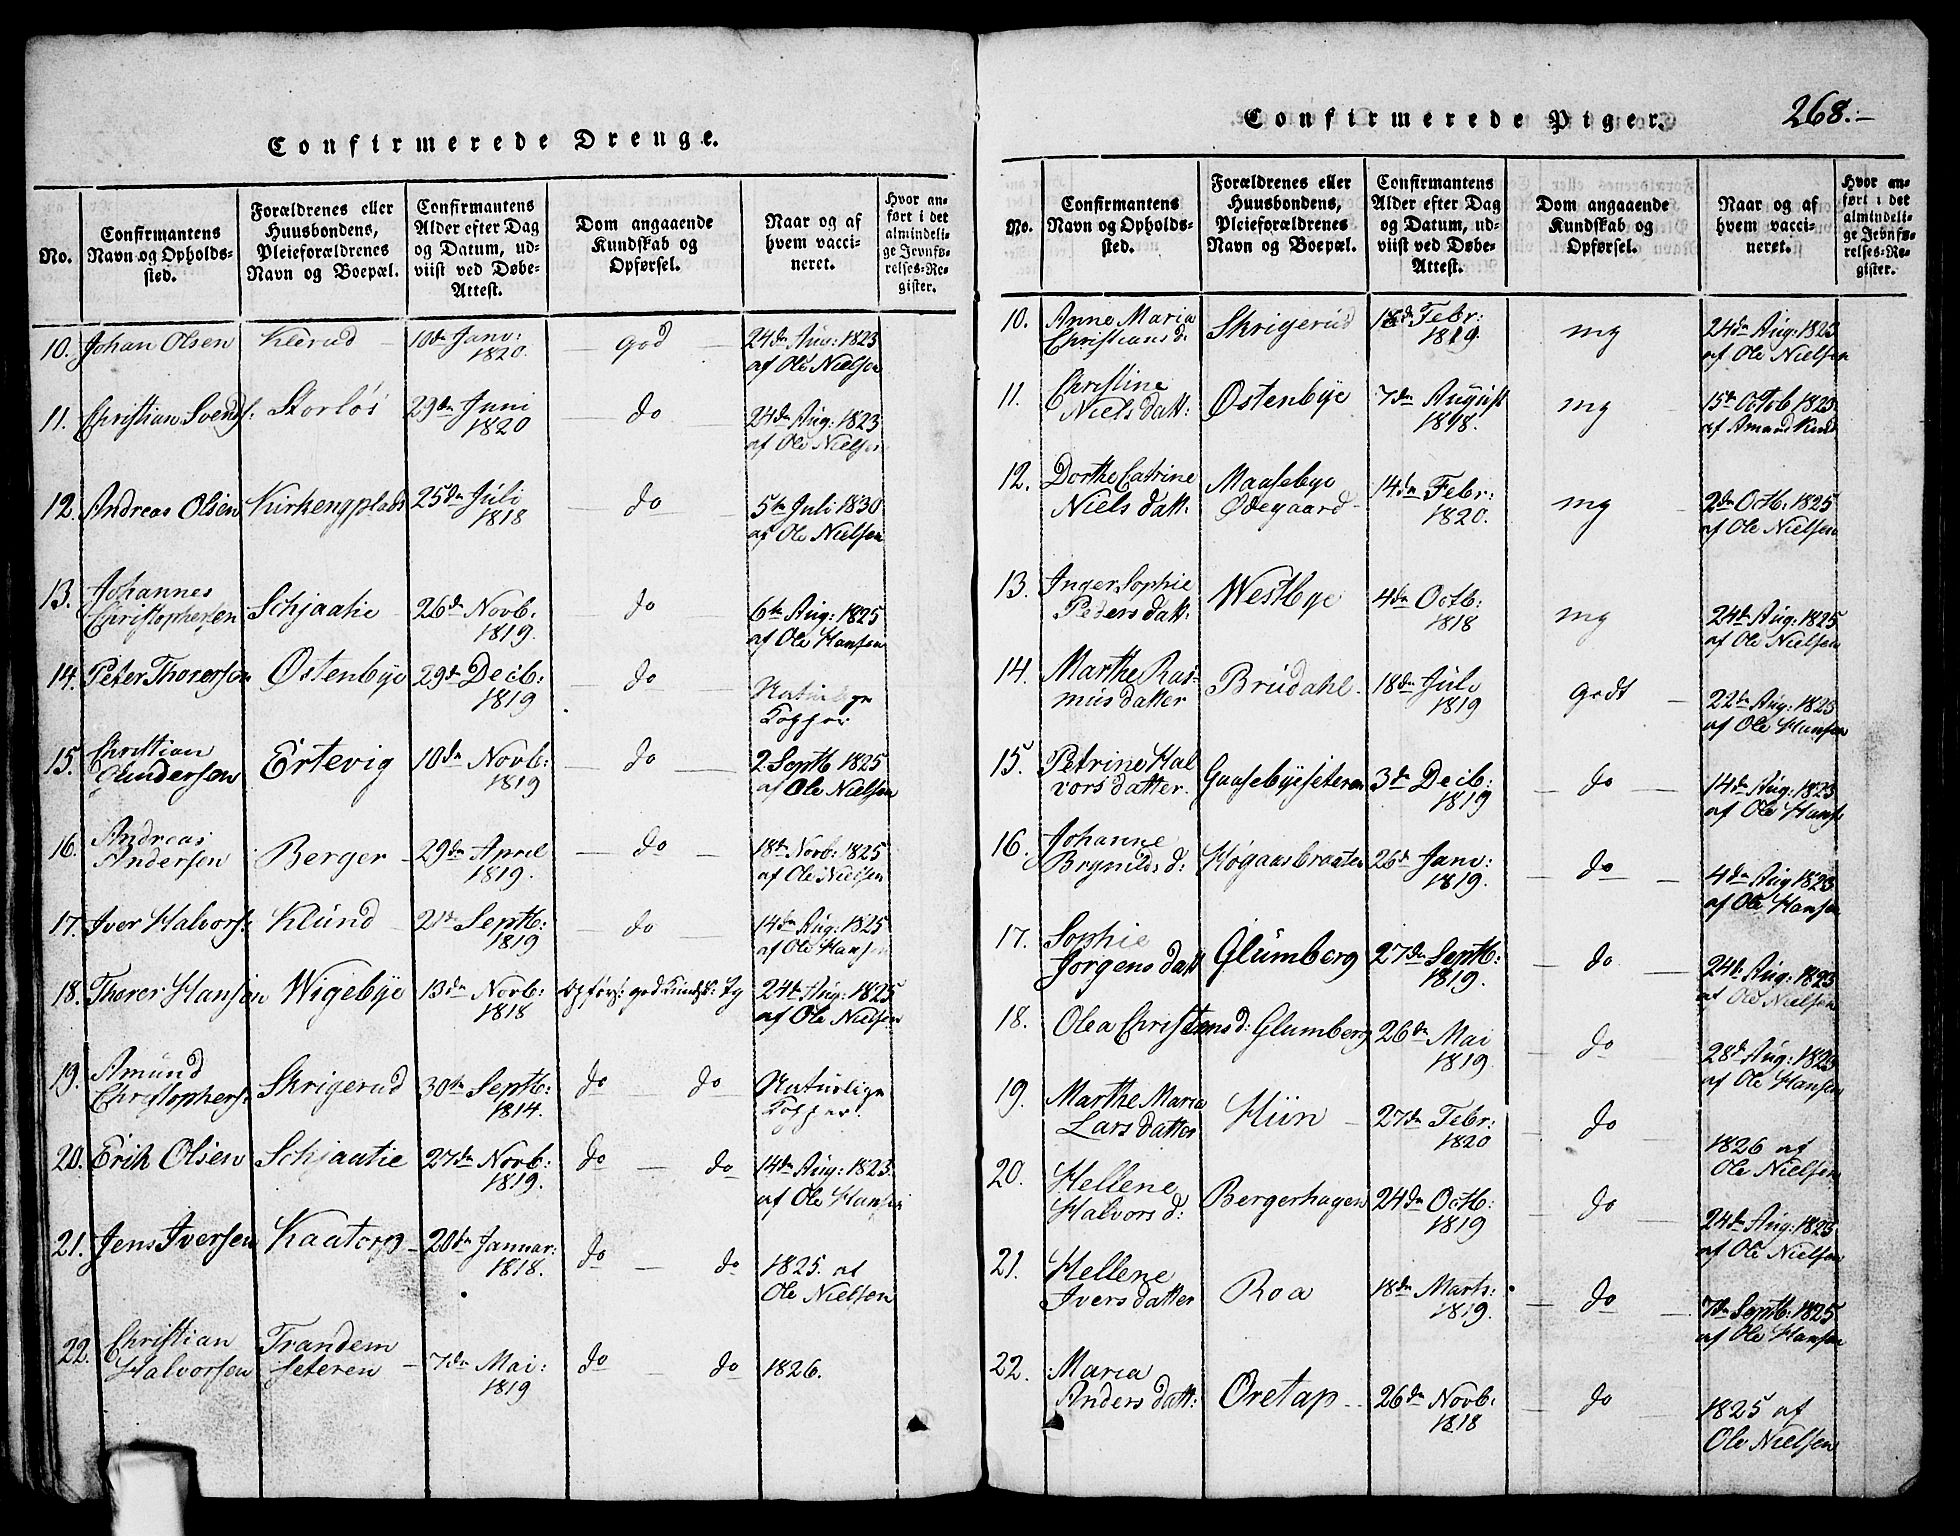 Confirmerede Drenge.
No.
Confirmantens
Navn og Opholds-
sted.
Forældrenes eller
Huusbondens,
Pleieforældrenes
Navn og Boepæl.
Confirmantens
Alder efter Dag
og Datum, ud-
viist ved Døbe-
Attest.
Dom angaaende
Kundskab og
Opførsel.
Naar og af
hvem vacci-
neret.
Hvor an-
ført i det
almindeli-
ge Jevnfø-
relses-Re-
gister.
10. Johan Olsen Klerud 10de Janv: 1820. god 24de Aug: 1823
af Ole Nielsen
11. Christian Svends. Storløs 29de Juni 1820 do 24de Aug: 1823
af Ole Nielsen
12. Andreas Olsen Kirkengplads 25de Juli 1818 do 5te Juli 1830
af Ole Nielsen
13. Johannes
Christophersen Schjaatie 26de Novb. 1819. do 6te Aug: 1825
af Ole Hansen
14. Peter Thorersen Østenbye 29de Decb: 1819 do Naturlige
Kopper
15. Christian
Gundersen Ertevig 10de Novb: 1819 do 2 Septb 1825
af Ole Nielsen
16. Andreas
Andersen Berger 29de April 1819. do 18de Novb: 1825
af Ole Nielsen
17. Iver Halvors: Klund 21de Septb: 1819 do 14de Aug: 1825
af Ole Hansen
18. Thorer Hansen Wigebye 13de Novb: 1818 Opførs: god Kundsk: Tg 24de Aug: 1825
af Ole Nielsen
19. Amund
Christophers: Skrigerud 30te Septb: 1814. do do Naturlige
Kopper.
20. Erik Olsen Schjaatie 27de Novb: 1819. do do 14de Aug: 1823
af Ole Hansen
21. Jens Iversen Kaatorp 20de Januar: 1818. do do 1825. af
Ole Nielsen
22. Christian
Halvorsen Trandem
seteren 7de Mai: 1819 do do 1826.
Confirmerede Piger.
268.
No.
Confirmantens
Navn og Opholds-
sted.
Forældrenes eller
Huusbondens,
Pleieforældrenes
Navn og Boepæl.
Confirmantens
Alder efter Dag
og Datum, ud-
viist ved Døbe-
Attest.
Dom angaaende
Kundskab og
Opførsel.
Naar og af
hvem vacci-
neret.
Hvor an-
ført i det
almindeli-
ge Jevnfø-
relses-Re-
gister.
10. Anne Maria
Christians d. Skrigerud 18de Febr: 1819. mg 24de Aug: 1823
af Ole Nielsen
11. Christine
Niels datt: Østenbye 7de August 1818. mg 15de Octob 1823
af Amund
12. Dorthe Catrine
Niels datt. Maasebye
Ødegaard 14de Febr: 1820. mg 2de Octb. 1825
af Ole Nielsen
13. Inger Sophie
Peders datt. Westbye 4de Octb: 1818 mg 24de Aug: 1825
af Ole Nielsen
14. Marthe Ras-
mus datter Brudahl. 18de Juli 1819 godt 22de Aug: 1825
af Ole Hansen
15. Petrine Hal
vors datter. Gaasebyeseteren 3de Decb: 1819 do 14de Aug: 1823
af Ole Hans.
16. Johanne
Brynilds d: Høgaasbraaten 26de Janv: 1819. do 4de Aug 1823
af Ole Hansen
17. Sophie
Jørgens datt Glumberg 27de Septb: 1819. do 24de Aug: 1823
af Ole Nielsen
18. Olea Christens d: Glumberg 26de Mai 1819 do 28de Aug: 1825
af Ole Hansen
19. Marthe Maria
Lars datter Hiin 27de Febr: 1820 do 1826 af
Ole Nielsen
20. Hellene
Halvors d: Bergerhagen 24de Octb: 1819 do 24de Aug: 1823
af Ole Nielsen
21. Hellene
Ivers datter Roa 18de Marts: 1819. do 7de Septb: 1825
af Ole Hansen
22. Maria
Anders datt: Oretap 26de Novb. 1818 do 1825 af
Ole Nielsen